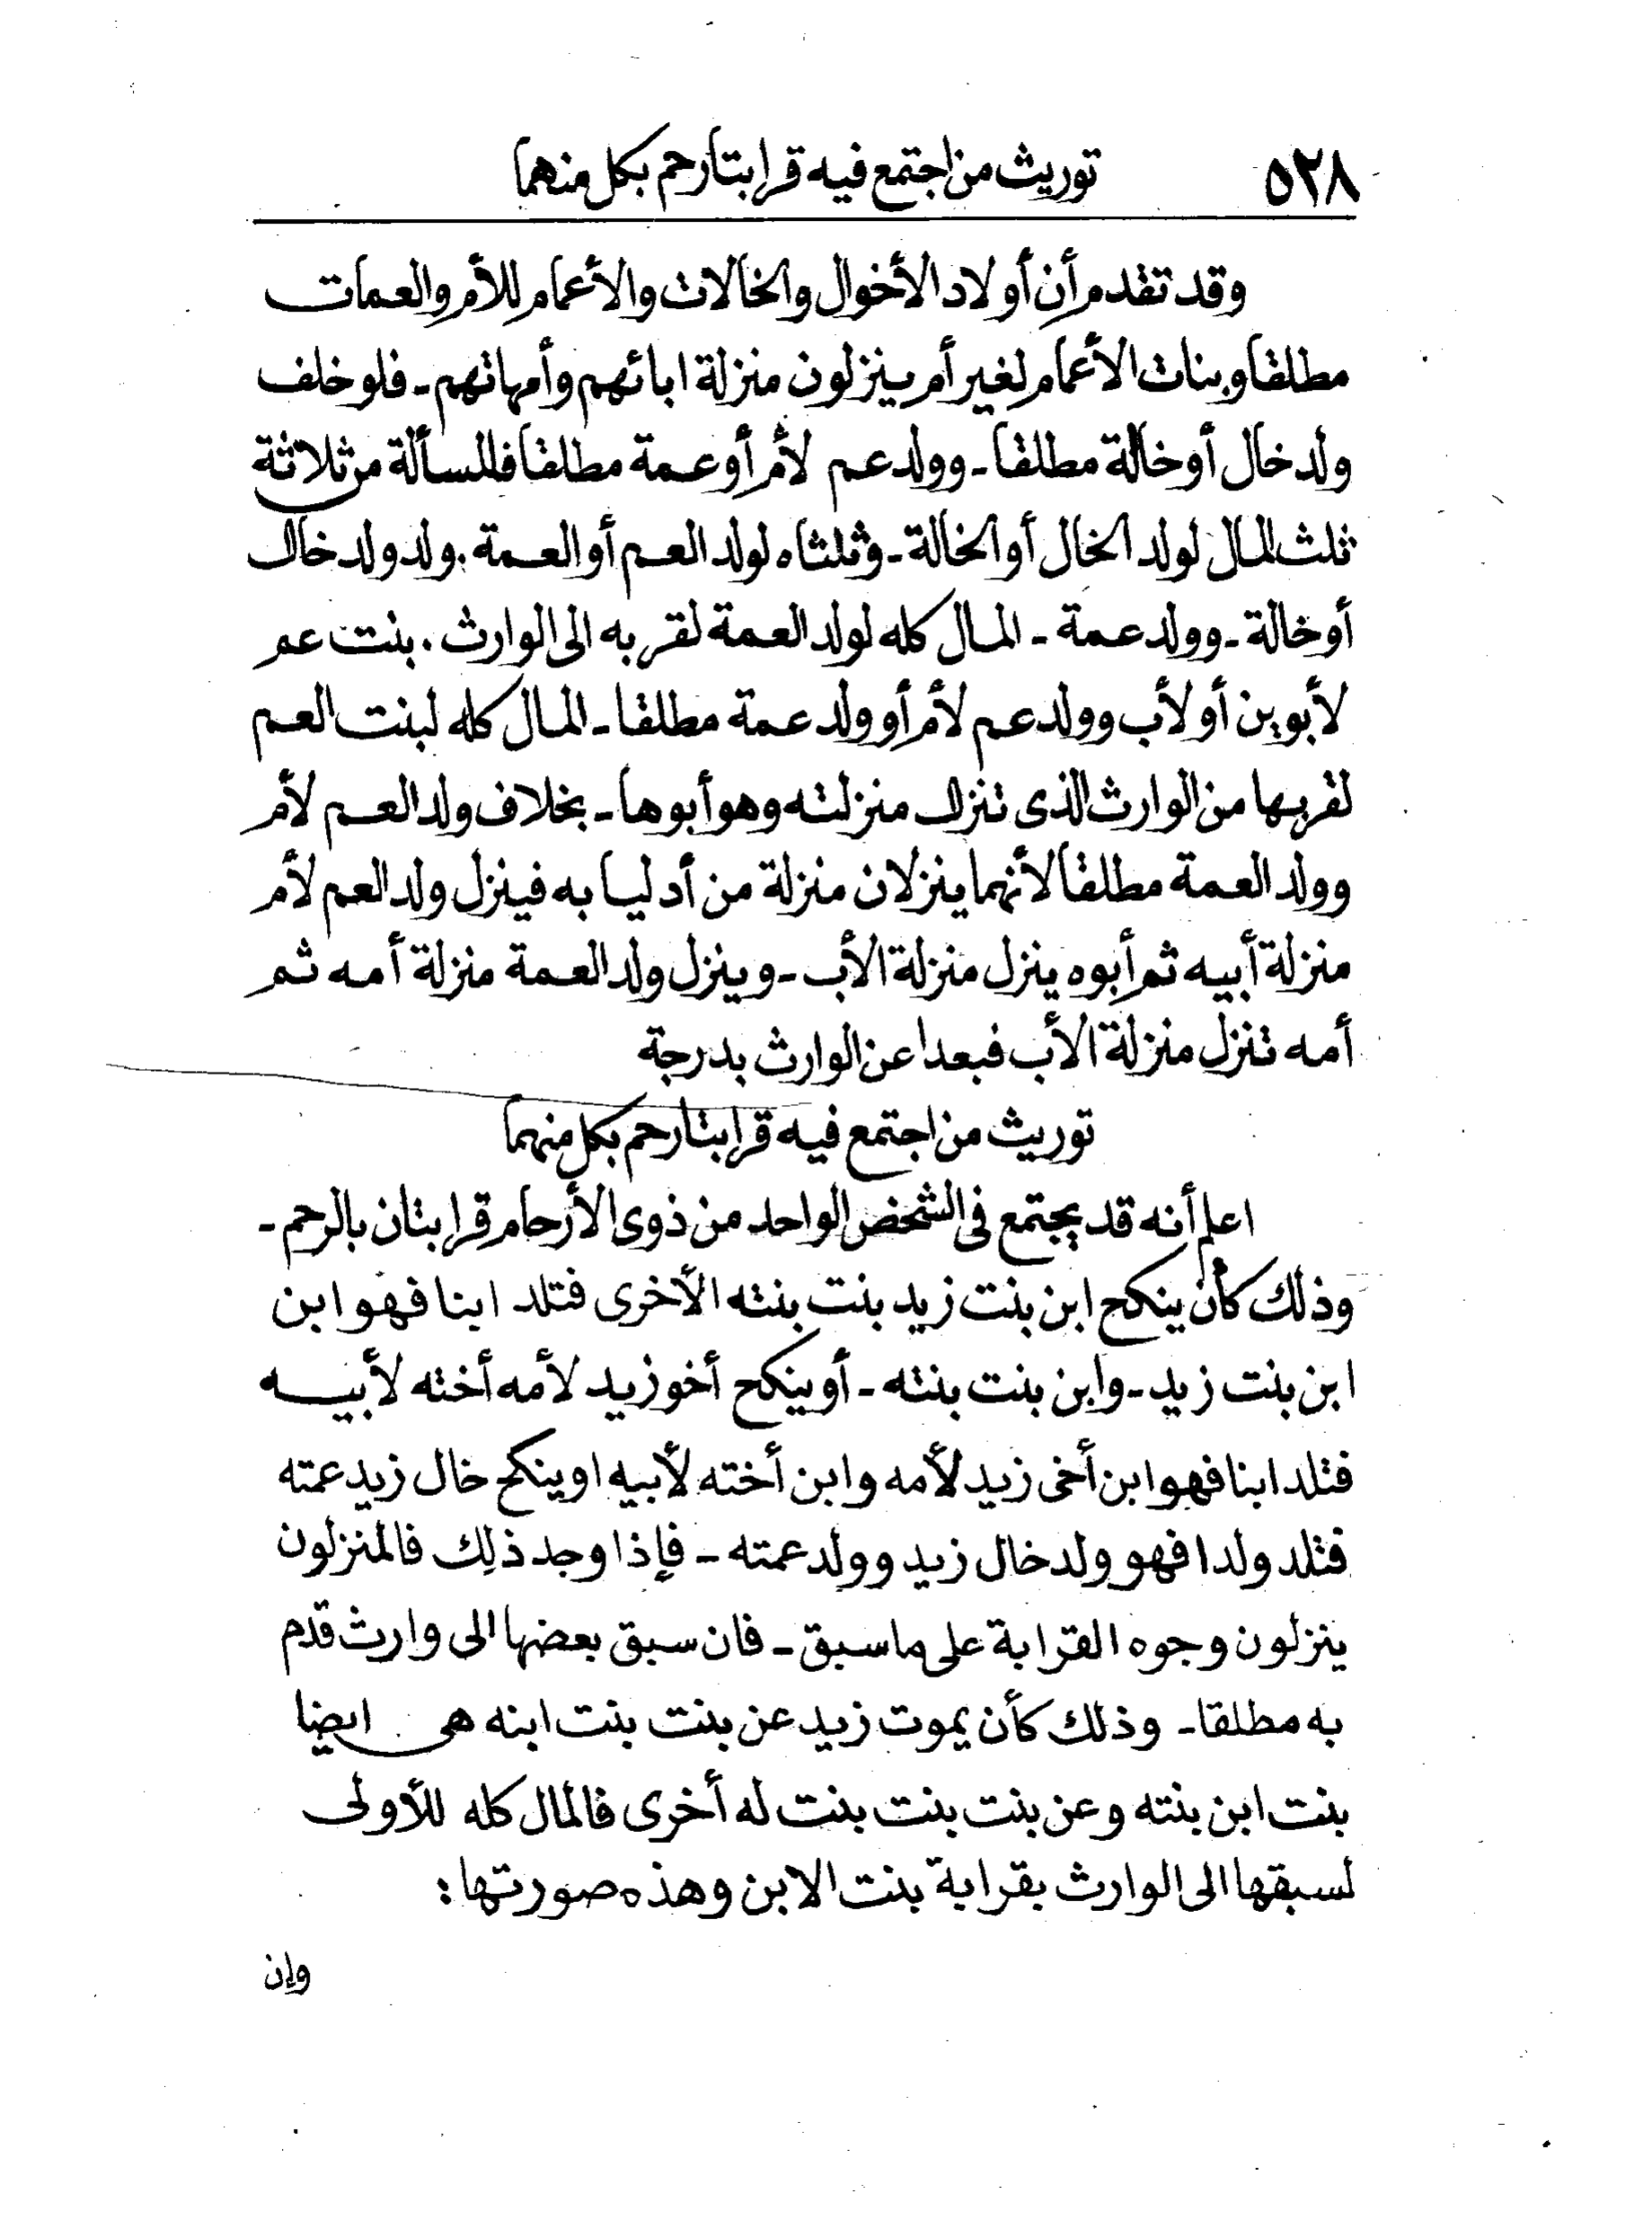 ٥٢٨ توريث من اجتمع فيه قرابتا رحم بكل منهما
وقد تقدم أن أولاد الأخوال والخالات والأعمام للأم والعمات
مطلقا وبنات الأعمام لغير أم ينزلون منزلة ابائهم وأمهاتهم - فلو خلف
ولد خال أو خالة مطلقا - وولد عم لأم أو عمة مطلقا فالمسألة من ثلاثة
ثلث المال لولد الخال أو الخالة - وثلثاه لولد العم أو العمة . ولد ولد خال
أو خالة - وولد عمة - المال كله لولد العمة لقربه الى الوارث . بنت عم
لأبوين أو لأب وولد عم لأم أو ولد عمة مطلقا - المال كله لبنت العم
لقربها من الوارث الذى تنزل منزلته وهو أبوها - بخلاف ولد العم لأم
وولد العمة مطلقا لأنهما ينزلان منزلة من أدليا به فينزل ولد العم لأم
منزلة أبيه ثم أبوه ينزل منزلة الأب - وينزل ولد العمة منزلة أمه ثم
أمه تنزل منزلة الأب فبعدا عن الوارث بدرجة
توريث من اجتمع فيه قرابتا رحم بكل منهما
اعلم أنه قد يجتمع فى الشخص الواحد من ذوى الأرحام قرابتان بالرحم -
وذلك كأن ينكح ابن بنت زيد بنت بنته الأخرى فتلد ابنا فهو ابن
ابن بنت زيد - وابن بنت بنته - أو ينكح أخو زيد لأمه أخته لأبيه
فتلد ابنا فهو ابن أخى زيد لأمه وابن أخته لأبيه او ينكح خال زيد عمته
فتلد ولدا فهو ولد خال زيد وولد عمته - فإذا وجد ذلك فالمنزلون
ينزلون وجوه القرابة على ما سبق - فان سبق بعضها الى وارث قدم
به مطلقا - وذلك كأن يموت زيد عن بنت بنت ابنه هى ايضا
بنت ابن بنته وعن بنت بنت بنت له أخرى فالمال كله للأولى
لسبقها الى الوارث بقرابة بنت الابن وهذه صورتها :
وإن